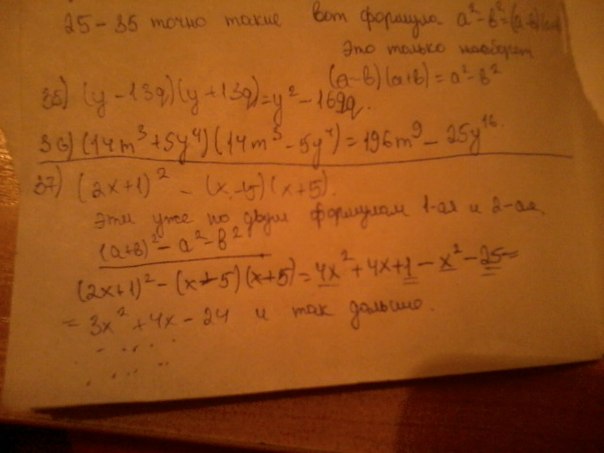 25 - 35 точно такие вот формула a² - b² = (a-b)
это только наоборот
(a-b)(a+b) = a² - b²
35) (y - 13q)(y + 13q) = y² - 169q.
36) (14m³ + 5y⁴)(14m³ - 5y⁴) = 196m⁹ - 25y¹⁶
37) (2x+1)² - (x-5)(x+5).
Эти уже по двум формулам 1-ая и 2-ая.
(a+b)² - a² - b²
(2x+1)² - (x-5)(x+5) = 4x² + 4x + 1 - x² - 25 =
= 3x² + 4x - 24 и так дальше.